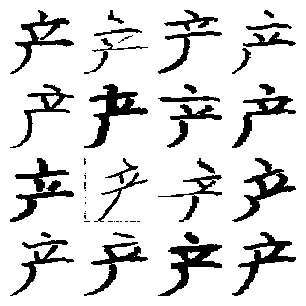 产产产产
产产产产
产产产产
产产产产